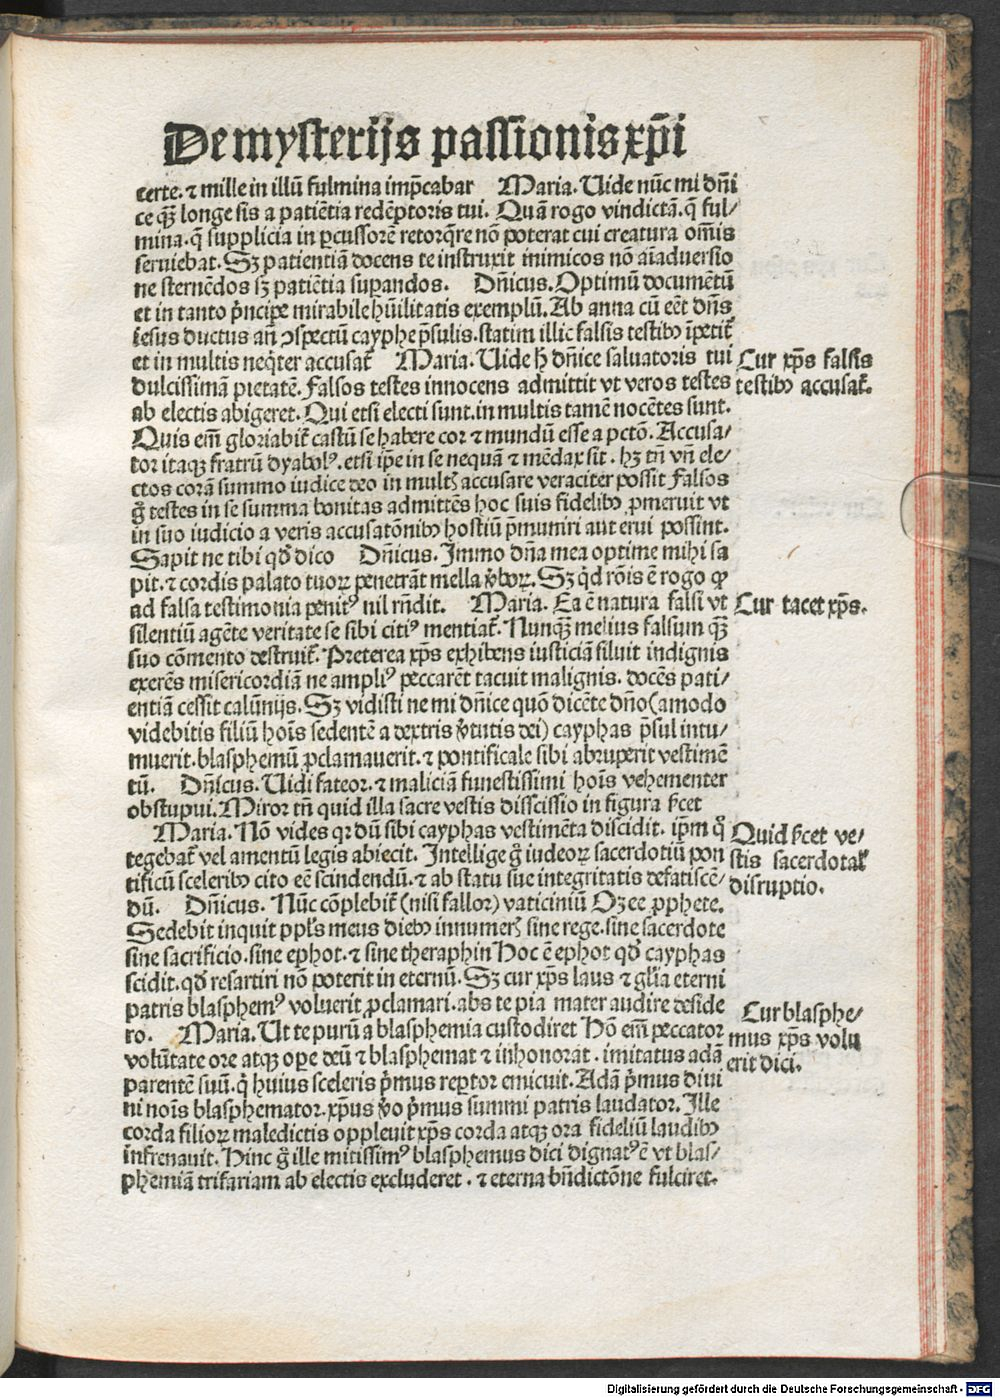 De mysterijs passionis xp̄i
certe. ⁊ mille in illū fulmina imp̄cabar Maria. Uide nūc mi dn̄i
ce qꝫ̄ longe sis a patiētia redēptoris tui. Quā rogo vindictā. q̄ ful⸗
mina. q̄ supplicia in ꝑcussorē retorq̄re nō poterat cui creatura om̄is
seruiebat. Sꝫ patientiā docens te instruxit inimicos nō aīaduersio
ne sternēdos sꝫ patiētia suꝑandos. Dn̄icus. Optimū documētū
et in tanto p̄ncipe mirabile hūilitatis exemplū. Ab anna cū eēt dn̄s
iesus ductus an̄ ↄspectū cayphe p̄sulis. statim illic falsis testibꝰ īpetit᷑
et in multis neq̄ter accusat᷑ Maria. Uide h̄ dn̄ice saluatoris tui
Cur xp̄s falsis
dulcissimā pietatē. Falsos testes innocens admittit vt veros testes
testibꝫ accusat᷑.
ab electis abigeret. Qui etsi electi sunt. in multis tamē nocētes sunt.
Quis em̄ gloriabit᷑ castū se habere cor ⁊ mundū esse a pctō. Accusa⸗
tor itaqꝫ fratrū dyabolꝰ. etsi ip̄e in se nequā ⁊ mēdax sit. hꝫ tn̄ vn̄ ele⸗
ctos corā summo iudice deo in multꝭ accusare veraciter possit Falsos
g̊ testes in se summa bonitas admittēs hoc suis fidelibꝫ ꝓmeruit vt
in suo iudicio a veris accusatōnibꝫ hostiū p̄muniri aut erui possint.
Sapit ne tibi qd̄ dico Dn̄icus. Immo dn̄a mea optime mihi sa
pit. ⁊ cordis palato tuoꝝ penetrāt mella v̄boꝝ. Sꝫ q̄d rōis ē rogo ꝙ
ad falsa testimonia penitꝰ nil rn̄dit. Maria. Ea ē natura falsi vt
Cur tacet xp̄s.
silentiū agēte veritate se sibi citiꝰ mentiat᷑. Nunqꝫ̄ melius falsum qꝫ̄
suo cōmento destruit᷑. Preterea xp̄s exhibens iusticiā siluit indignis
exerēs misericordiā ne ampliꝰ peccarēt tacuit malignis. docēs pati⸗
entiā cessit calūnijs. Sꝫ vidisti ne mi dn̄ice quō dicēte dn̄o (amodo
videbitis filiū hoīs sedentē a dextris v̄tutis dei) cayphas p̄sul intu⸗
muerit. blasphemū ꝓclamauerit. ⁊ pontificale sibi abruperit vestimē
tū. Dn̄icus. Uidi fateor. ⁊ maliciā funestissimi hoīs vehementer
obstupui. Miror tn̄ quid illa sacre vestis disscissio in figura p̄cet
Maria. Nō vides qꝛ dū sibi cayphas vestimēta discidit. ip̄m q̊
Quid p̄cet ve⸗
tegebat᷑ velamentū legis abiecit. Intellige g̊ iudeoꝝ sacerdotiū pon
stis sacerdotal᷑
tificū sceleribꝫ cito eē scindendū. ⁊ ab statu sue integritatis defatiscē⸗
disruptio.
dū. Dn̄icus. Nūc cōplebit᷑ (nisi fallor) vaticiniū Ozee ꝓphete.
Sedebit inquit ppl̄s meus diebꝫ innumerꝭ sine rege. sine sacerdote
sine sacrificio. sine ephot. ⁊ sine theraphin Hoc ē ephot qd̄ cayphas
scidit. qd̄ resartiri nō poterit in eternū. Sꝫ cur xp̄s laus ⁊ gl̄ia eterni
patris blasphemꝰ voluerit ꝓclamari. abs te pia mater audire deside
Cur blasphe⸗
ro. Maria. Ut te purū a blasphemia custodiret Hō em̄ peccator
mus xp̄s volu
volūtate ore atqꝫ oꝑe deū ⁊ blasphemat ⁊ inhonorat. imitatus adā
erit dici.
parentē suū. q̄ huius sceleris p̄mus reptor emicuit. Adā p̄mus diui
ni noīs blasphemator. xp̄us v̄o p̄mus summi patris laudator. Ille
corda filioꝝ maledictis oppleuit xp̄s corda atqꝫ ora fideliū laudibꝫ
infrenauit. Hinc g̊ ille mitissimꝰ blasphemus dici dignatꝰ ē vt blas⸗
phemiā trifariam ab electis excluderet. ⁊ eterna bn̄dictōne fulciret.
Digitalisierung gefördert durch die Deutsche Forschungsgemeinschaft - DFG